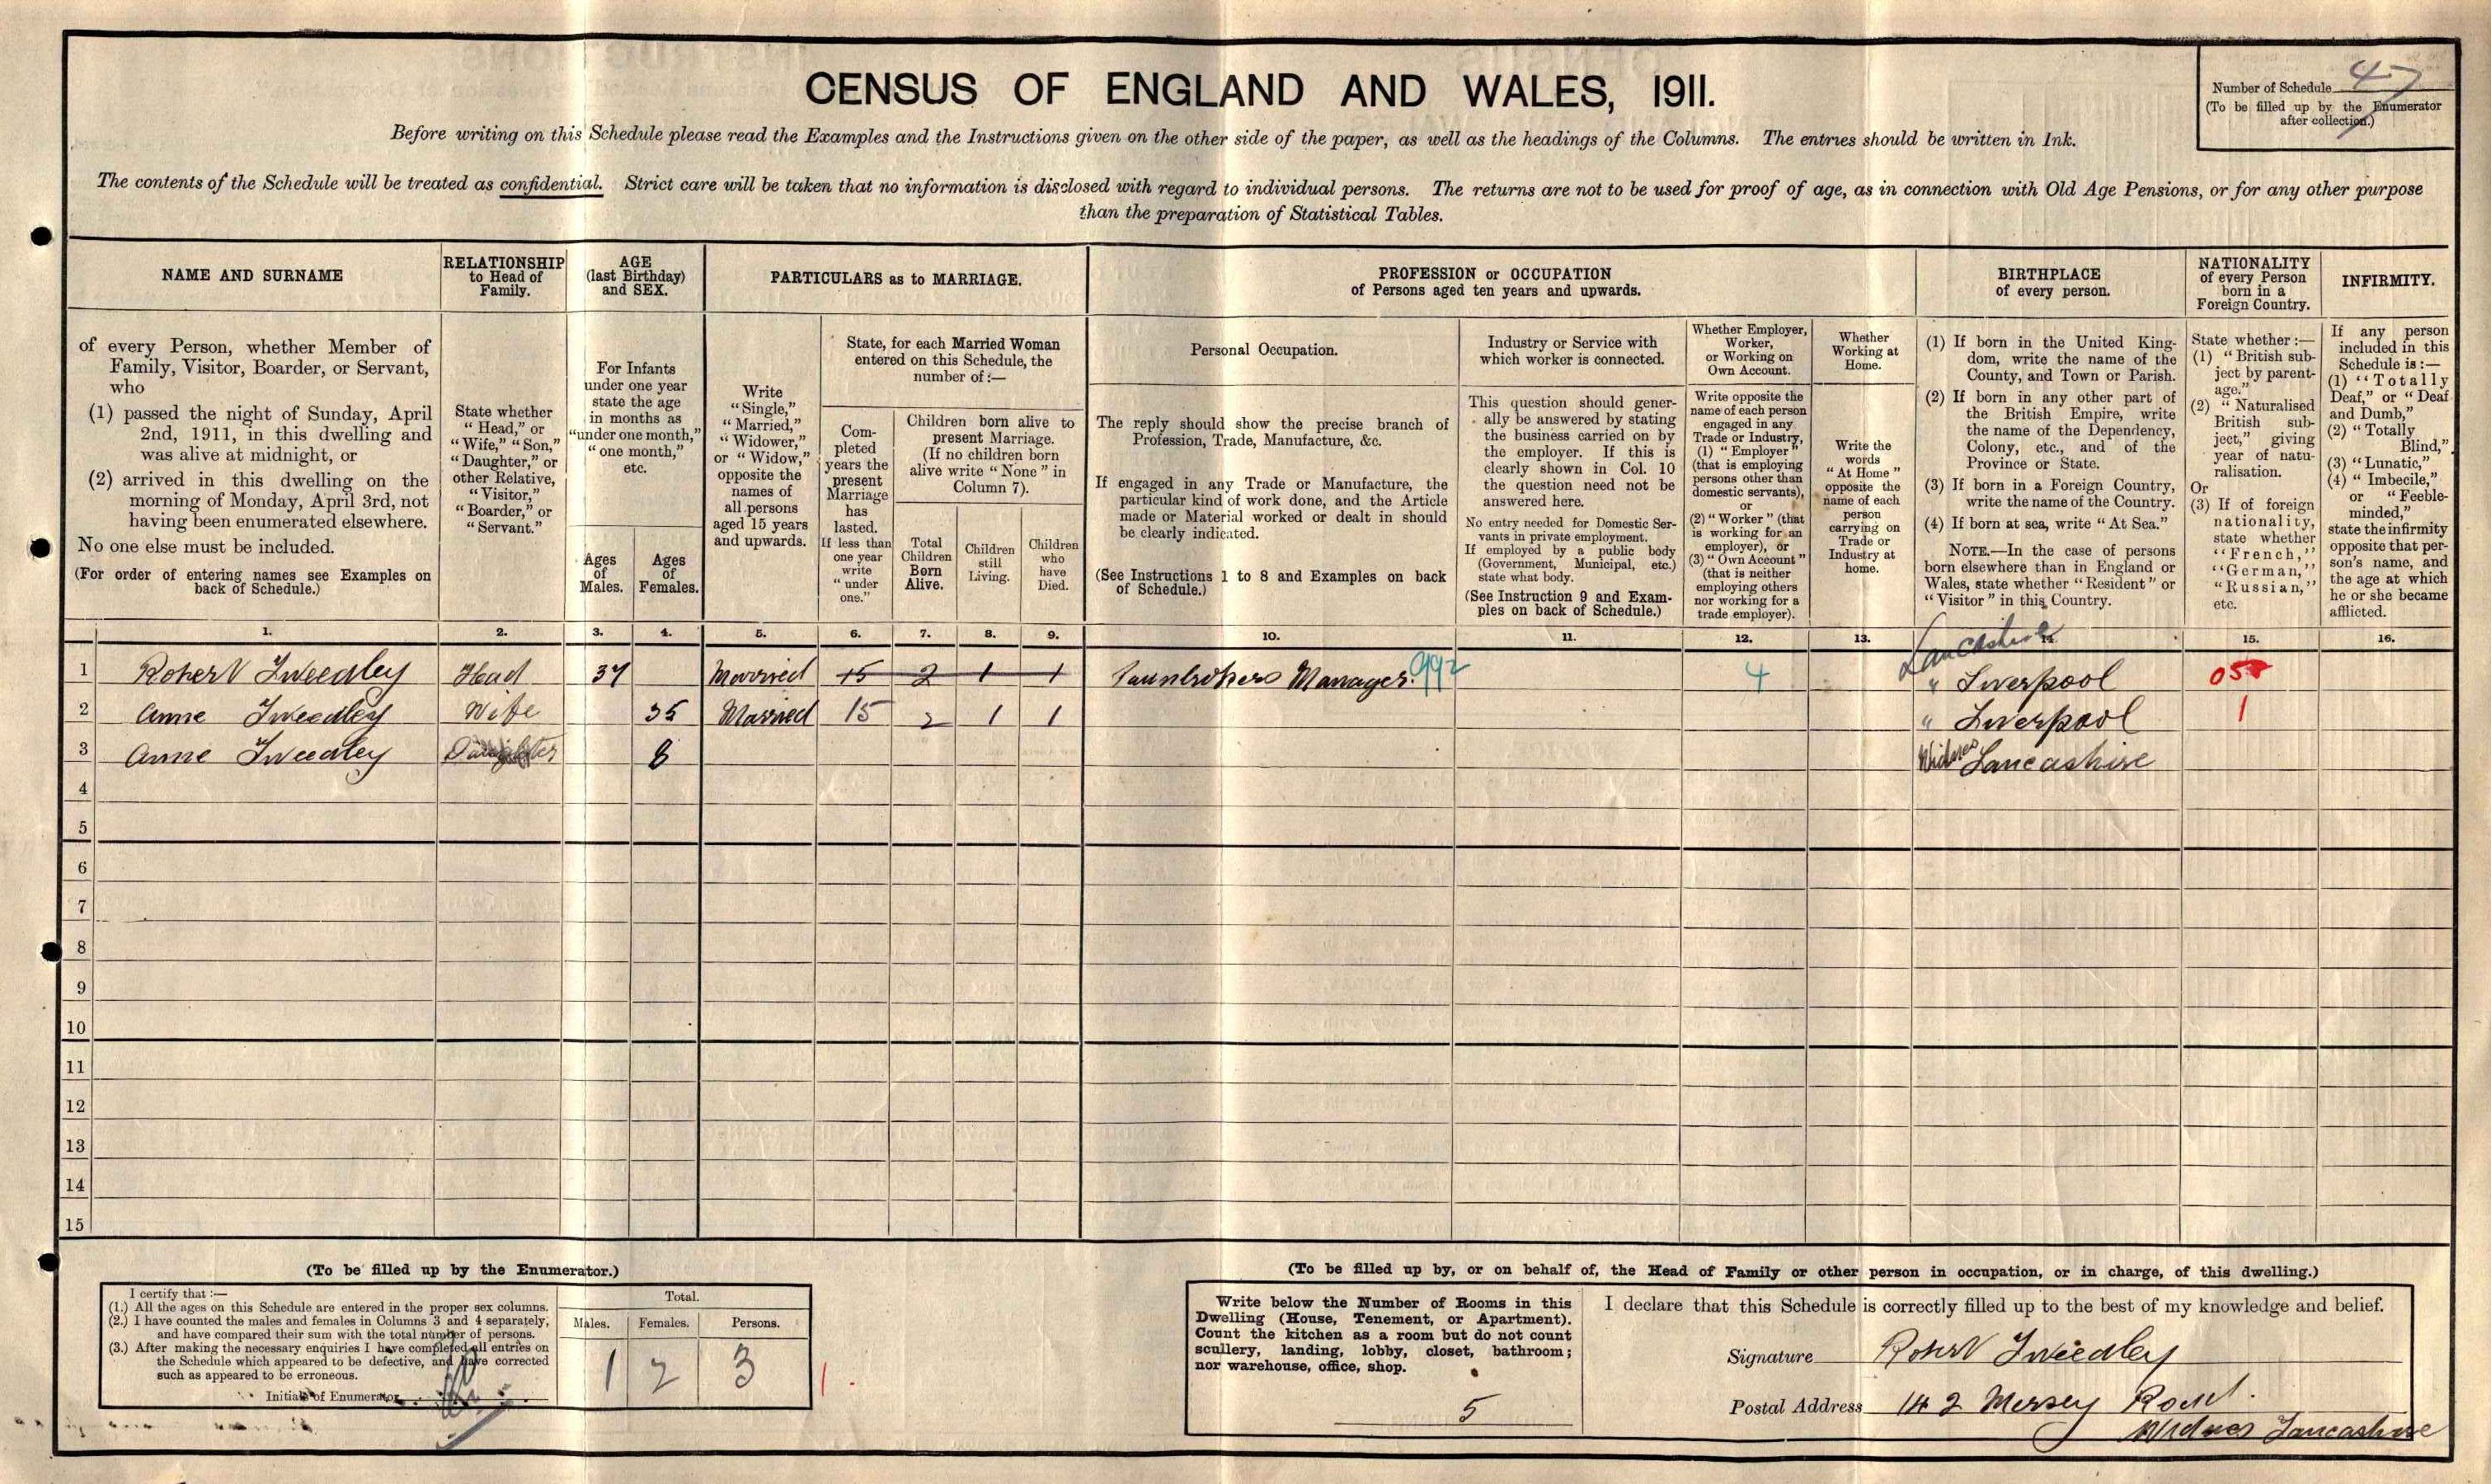 CENSUS OF ENGLAND AND WALES, 1911.
Number of Schedule 47
(To be filled up by the Enumerator
after collection.)
Before writing on this Schedule please read the Examples and the Instructions given on the other side of the paper, as well as the headings of the Columns. The entries should be written in Ink.
The contents of the Schedule will be treated as confidential. Strict care will be taken that no information is disclosed with regard to individual persons. The returns are not to be used for proof of age, as in connection with Old Age Pensions, or for any other purpose
than the preparation of Statistical Tables.
NAME AND SURNAME
of every Person, whether Member of
Family, Visitor, Boarder, or Servant,
who
(1) passed the night of Sunday, April
2nd, 1911, in this dwelling and
was alive at midnight, or
(2) arrived in this dwelling on the
morning of Monday, April 3rd, not
having been enumerated elsewhere.
No one else must be included.
(For order of entering names see Examples on
back of Schedule.)
RELATIONSHIP
to Head of
Family.
State whether
"Head," or
"Wife," "Son,"
"Daughter," or
other Relative,
"Visitor,"
"Boarder," or
"Servant."
AGE
(last Birthday)
and SEX.
For Infants
under one year
state the age
in months as
"under one month,"
"one month,"
etc.
Ages
of
Males.
Ages
of
Females.
PARTICULARS as to MARRIAGE.
Write
"Single,"
"Married,"
"Widower,"
or "Widow,"
opposite the
names of
all persons
aged 15 years
and upwards.
State, for each Married Woman
entered on this Schedule, the
number of:—
Com-
pleted
years the
present
Marriage
has
lasted.
If less than
one year
write
"under
one."
Children born alive to
present Marriage.
(If no children born
alive write "None" in
Column 7).
Total
Children
Born
Alive.
Children
still
Living.
Children
who
have
Died.
PROFESSION or OCCUPATION
of Persons aged ten years and upwards.
Personal Occupation.
The reply should show the precise branch of
Profession, Trade, Manufacture, &c.
If engaged in any Trade or Manufacture, the
particular kind of work done, and the Article
made or Material worked or dealt in should
be clearly indicated.
(See Instructions 1 to 8 and Examples on back
of Schedule.)
Industry or Service with
which worker is connected.
This question should gener-
ally be answered by stating
the business carried on by
the employer. If this is
clearly shown in Col. 10
the question need not be
answered here.
No entry needed for Domestic Ser-
vants in private employment.
If employed by a public body
(Government, Municipal, etc.)
state what body.
(See Instruction 9 and Exam-
ples on back of Schedule.)
Whether Employer,
Worker,
or Working on
Own Account.
Write opposite the
name of each person
engaged in any
Trade or Industry,
(1) "Employer"
(that is employing
persons other than
domestic servants),
or
(2) "Worker" (that
is working for an
employer), or
(3) "Own Account"
(that is neither
employing others
nor working for a
trade employer).
Whether
Working at
Home.
Write the
words
"At Home"
opposite the
name of each
person
carrying on
Trade or
Industry at
home.
BIRTHPLACE
of every person.
(1) If born in the United King-
dom, write the name of the
County, and Town or Parish.
(2) If born in any other part of
the British Empire, write
the name of the Dependency,
Colony, etc., and of the
Province or State.
(3) If born in a Foreign Country,
write the name of the Country.
(4) If born at sea, write "At Sea."
NOTE.—In the case of persons
born elsewhere than in England or
Wales, state whether "Resident" or
"Visitor" in this Country.
NATIONALITY
of every Person
born in a
Foreign Country.
State whether:—
(1) "British sub-
ject by parent-
age."
(2) "Naturalised
British sub-
ject," giving
year of natu-
ralisation.
Or
(3) If of foreign
nationality,
state whether
"French,"
"German,"
"Russian,"
etc.
INFIRMITY.
If any person
included in this
Schedule is:—
(1) "Totally
Deaf," or "Deaf
and Dumb,"
(2) "Totally
Blind,"
(3) "Lunatic,"
(4) "Imbecile,"
or "Feeble-
minded,"
state the infirmity
opposite that per-
son's name, and
the age at which
he or she became
afflicted.
1. 2. 3. 4. 5. 6. 7. 8. 9. 10. 11. 12. 13. 14. 15. 16.
Lancashire
1 Robert Tweedley Head 37 Married 15 2 1 1 Pawnbrokers Manager 992 4 " Liverpool 050
2 Anne Tweedley Wife 35 Married 15 2 1 1 " Liverpool 1
3 Anne Tweedley Daughter 8 Widnes Lancashire
4
5
6
7
8
9
10
11
12
13
14
15
(To be filled up by the Enumerator.)
I certify that:—
(1.) All the ages on this Schedule are entered in the proper sex columns.
(2.) I have counted the males and females in Columns 3 and 4 separately,
and have compared their sum with the total number of persons.
(3.) After making the necessary enquiries I have completed all entries on
the Schedule which appeared to be defective, and have corrected
such as appeared to be erroneous.
Initials of Enumerator
Total.
Males. Females. Persons.
1 2 3 1.
(To be filled up by, or on behalf of, the Head of Family or other person in occupation, or in charge, of this dwelling.)
Write below the Number of Rooms in this
Dwelling (House, Tenement, or Apartment).
Count the kitchen as a room but do not count
scullery, landing, lobby, closet, bathroom;
nor warehouse, office, shop.
5
I declare that this Schedule is correctly filled up to the best of my knowledge and belief.
Signature Robert Tweedley
Postal Address 142 Mersey Road.
Widnes Lancashire